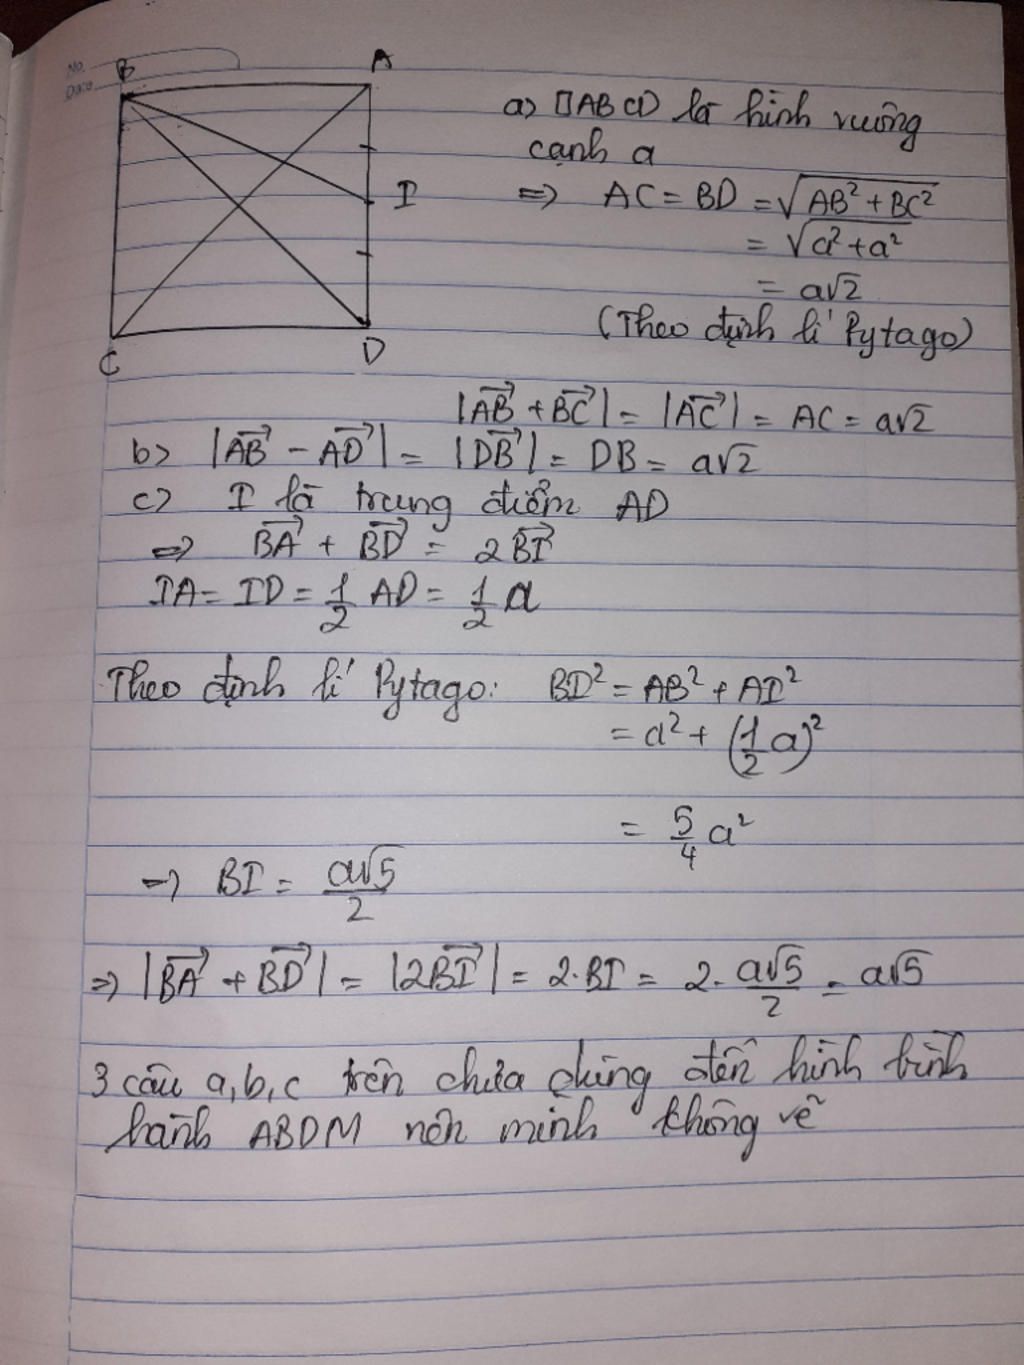 No.
Date
B
A
I
C
D
a) □ABCD là hình vuông
cạnh a
=> AC = BD = √(AB² + BC²)
= √(a² + a²)
= a√2
(Theo định lí Pytago)
|AB→ + BC→| = |AC→| = AC = a√2
b) |AB→ - AD→| = |DB→| = DB = a√2
c) I là trung điểm AD
=> BA→ + BD→ = 2BI→
IA = ID = 1/2 AD = 1/2 a
Theo định lí Pytago: BI² = AB² + AI²
= a² + (1/2 a)²
= 5/4 a²
=> BI = a√5/2
=> |BA→ + BD→| = |2BI→| = 2.BI = 2. a√5/2 = a√5
3 câu a, b, c trên chưa dùng đến hình bình
hành ABDM nên mình không vẽ